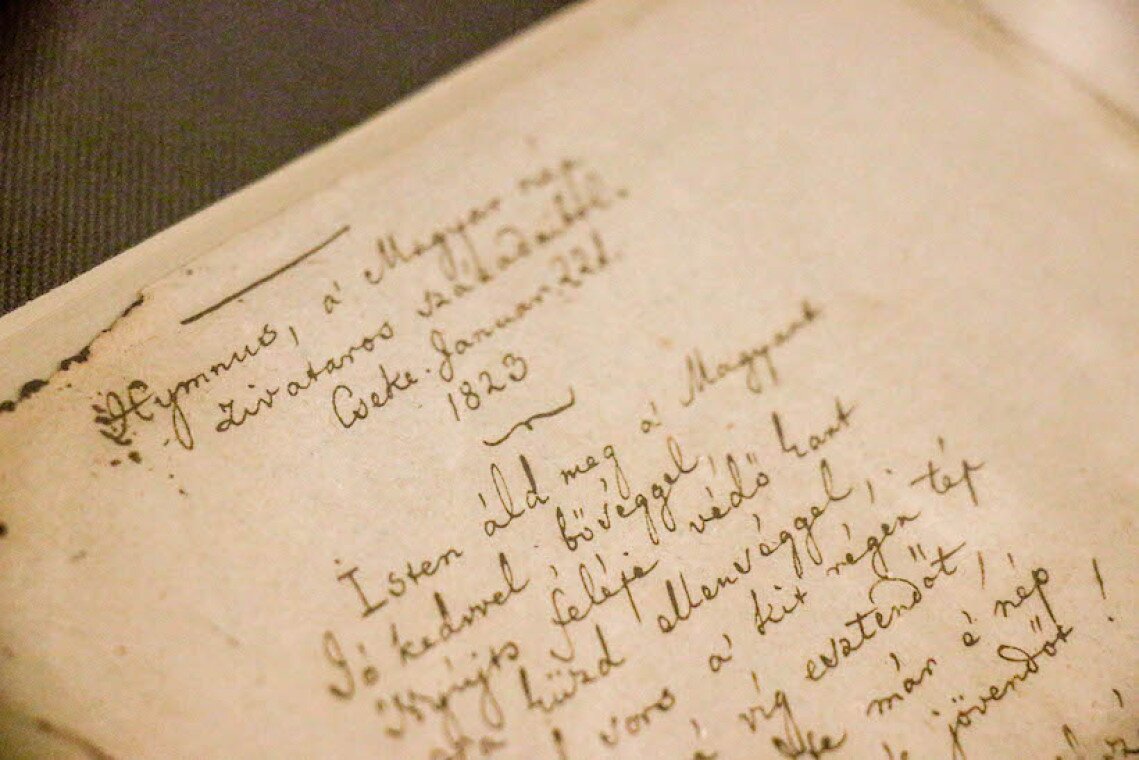 Hymnus, a' Magyar nép
zivataros századaiból.
Cseke. Januar. 22d.
1823
Isten áld meg a' Magyart
Jó kedvvel, bőséggel,
Nyújts feléje védő kart
küzd ellenséggel;
sors a' kit régen tép
víg esztendőt,
már e' nép
jövendőt!